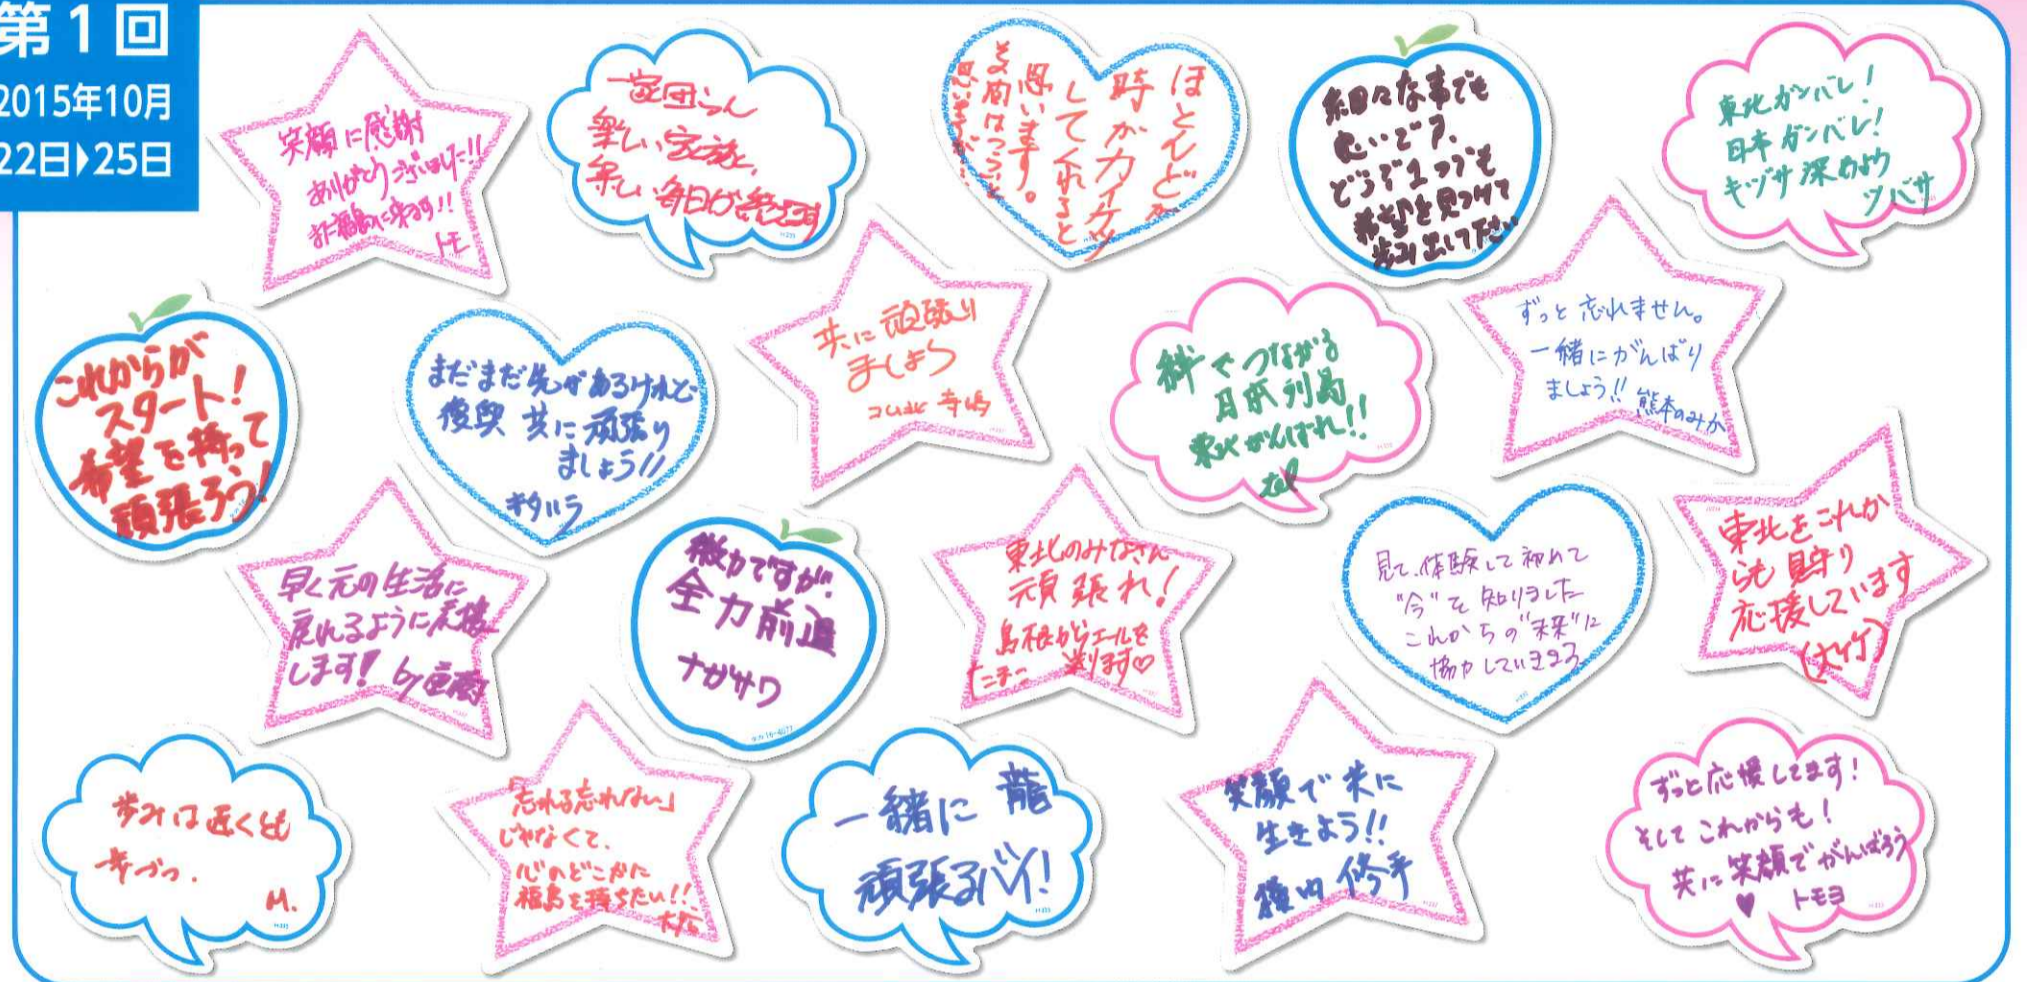 第1回
2015年10月
22日▶25日
笑顔に感謝
ありがとうございました!!
また福島に来ます!!
トモ
一家団らん
楽しい家族、
楽しい毎日が
ほとんどが
時がカイケツ
してくれると
思います。
その間はつらいと
思いますが…
細々な事でも
良いです、
どうぞ1つでも
希望を見つけて
歩み出して下さい
東北ガンバレ!
日本ガンバレ!
キヅナ深めよう
ツバサ
これからが
スタート!
希望を持って
頑張ろう!
まだまだ先があるけれど
復興 共に頑張り
ましょう!!
キタハラ
共に頑張り
ましょう
寺嶋
絆でつながる
日本列島
東北がんばれ!!
ずっと忘れません。
一緒にがんばり
ましょう!! 熊本のみか
早く元の生活に
戻れるように応援
します! by
微力ですが、
全力前進
ナガサワ
東北のみなさん
頑張れ!
島根からエールを
送ります♡
たまこ
見て、体験して初めて
"今"を知りました
これからの"未来"に
協力していきます
東北をこれか
らも見守り
応援しています
(大竹)
歩みは遅くとも
一歩づつ.
M.
「忘れる忘れない」
じゃなくて、
心のどこかに
福島を持ちたい!!
一緒に 龍
頑張るバイ!
笑顔で共に
生きよう!!
ずっと応援してます!
そしてこれからも!
共に笑顔でがんばろう
♥ トモヨ